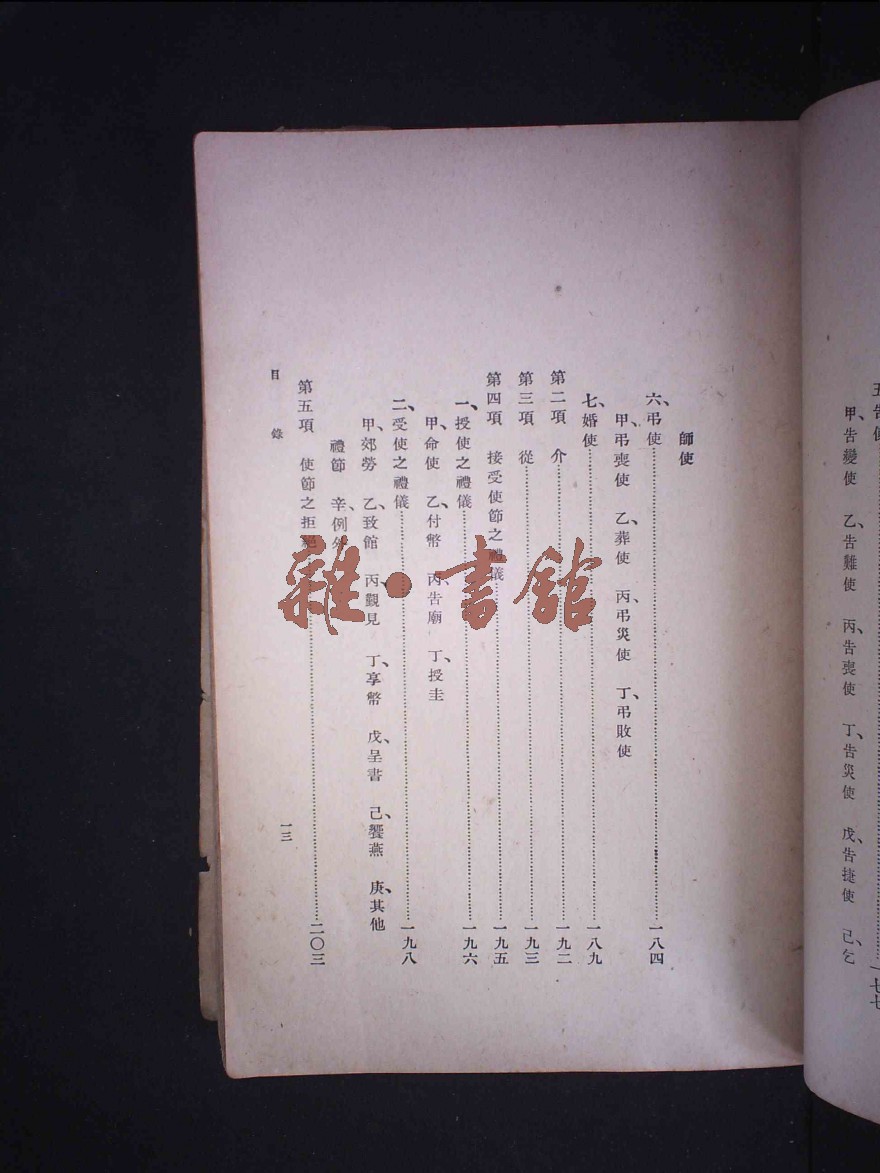 五、告使……一七七
甲、告變使 乙、告難使 丙、告喪使 丁、告災使 戊、告捷使 己、乞
師使
六、弔使……一八四
甲、弔喪使 乙、葬使 丙、弔災使 丁、弔敗使
七、婚使……一八九
第二項 介……一九二
第三項 從……一九三
第四項 接受使節之禮儀……一九五
一、授使之禮儀……一九六
甲、命使 乙、付幣 丙、告廟 丁、授圭
二、受使之禮儀……一九八
甲、郊勞 乙、致館 丙、觀見 丁、享幣 戊、呈書 己、饗燕 庚、其他
禮節 辛、例外
第五項 使節之拒絕……二〇三
目錄
一三
雜·書館